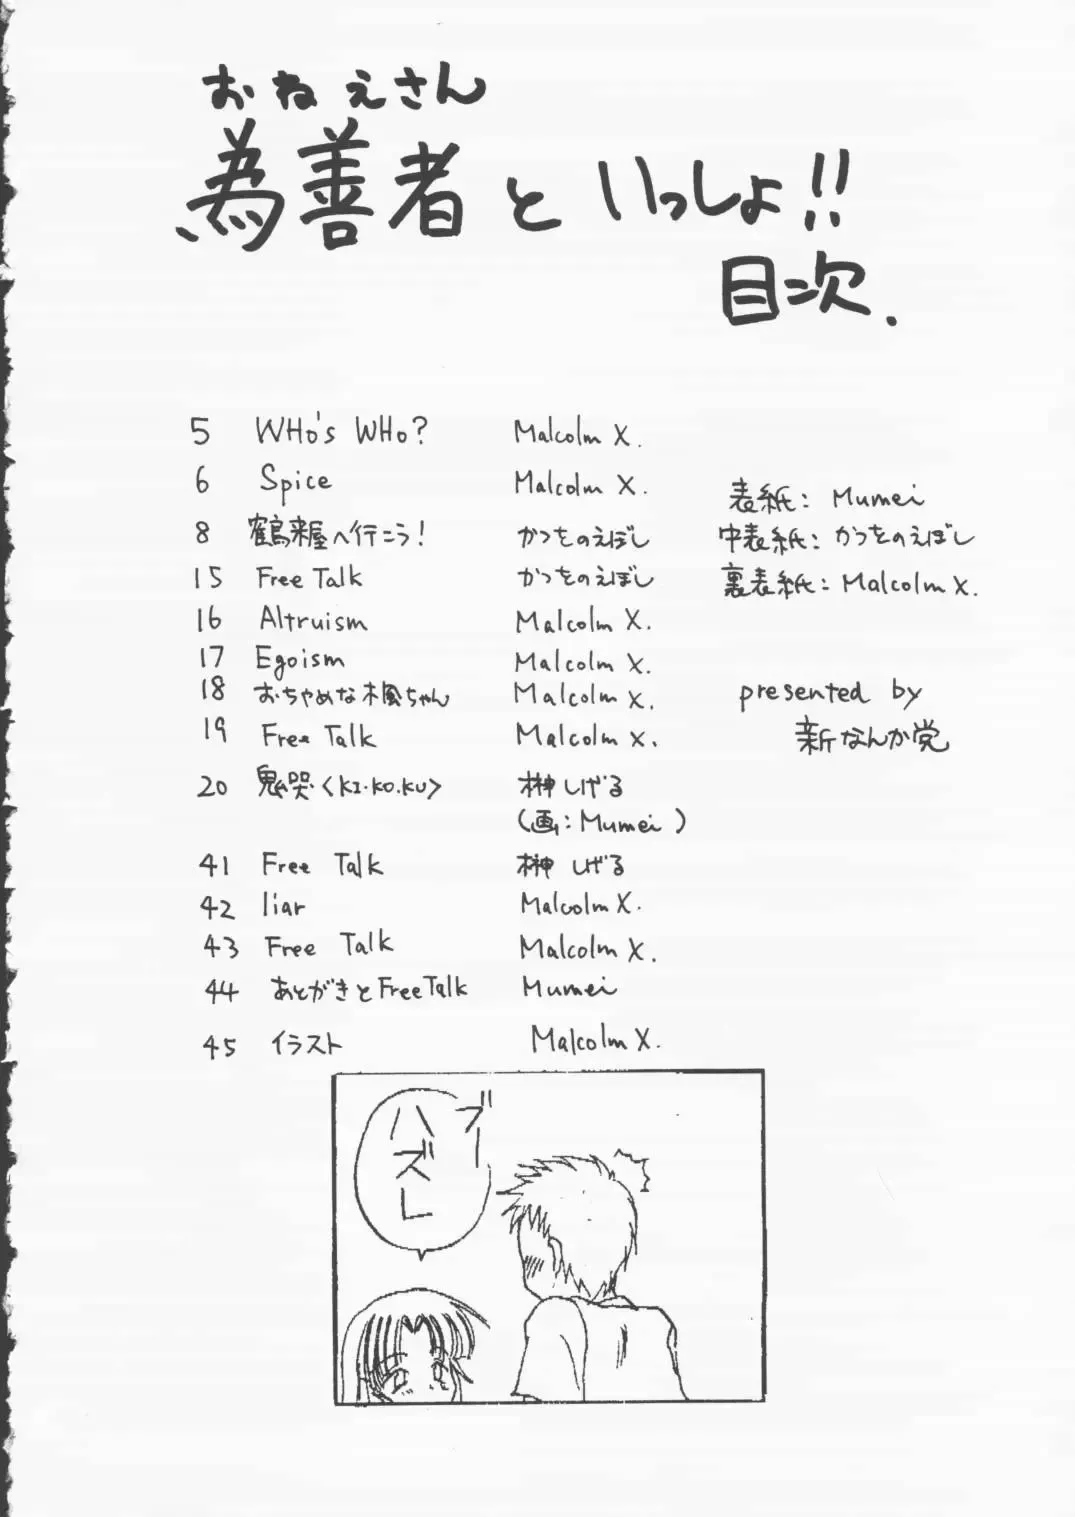 おねえさん
為善者といっしょ!!
目次.
5 WHo's WHo? Malcolm X.
6 Spice Malcolm X.
8 鶴来屋へ行こう! かつをのえぼし
15 Free Talk かつをのえぼし
16 Altruism Malcolm X.
17 Egoism Malcolm X.
18 おちゃめな楓ちゃん Malcolm X.
19 Free Talk Malcolm X.
20 鬼哭<KI・KO・KU> 榊しげる
(画:Mumei)
41 Free Talk 榊しげる
42 liar Malcolm X.
43 Free Talk Malcolm X.
44 あとがきとFree Talk Mumei
45 イラスト Malcolm X.
表紙: Mumei
中表紙: かつをのえぼし
裏表紙: Malcolm X.
presented by
新なんか党
ブー
ハズレ